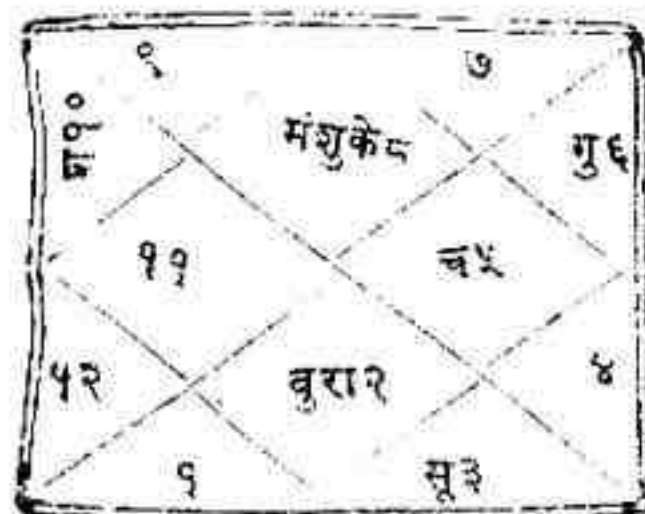 ९ ७
श१० मंशुके८ गु६
११ चं५
१२ वुरा२ ४
१ सू३